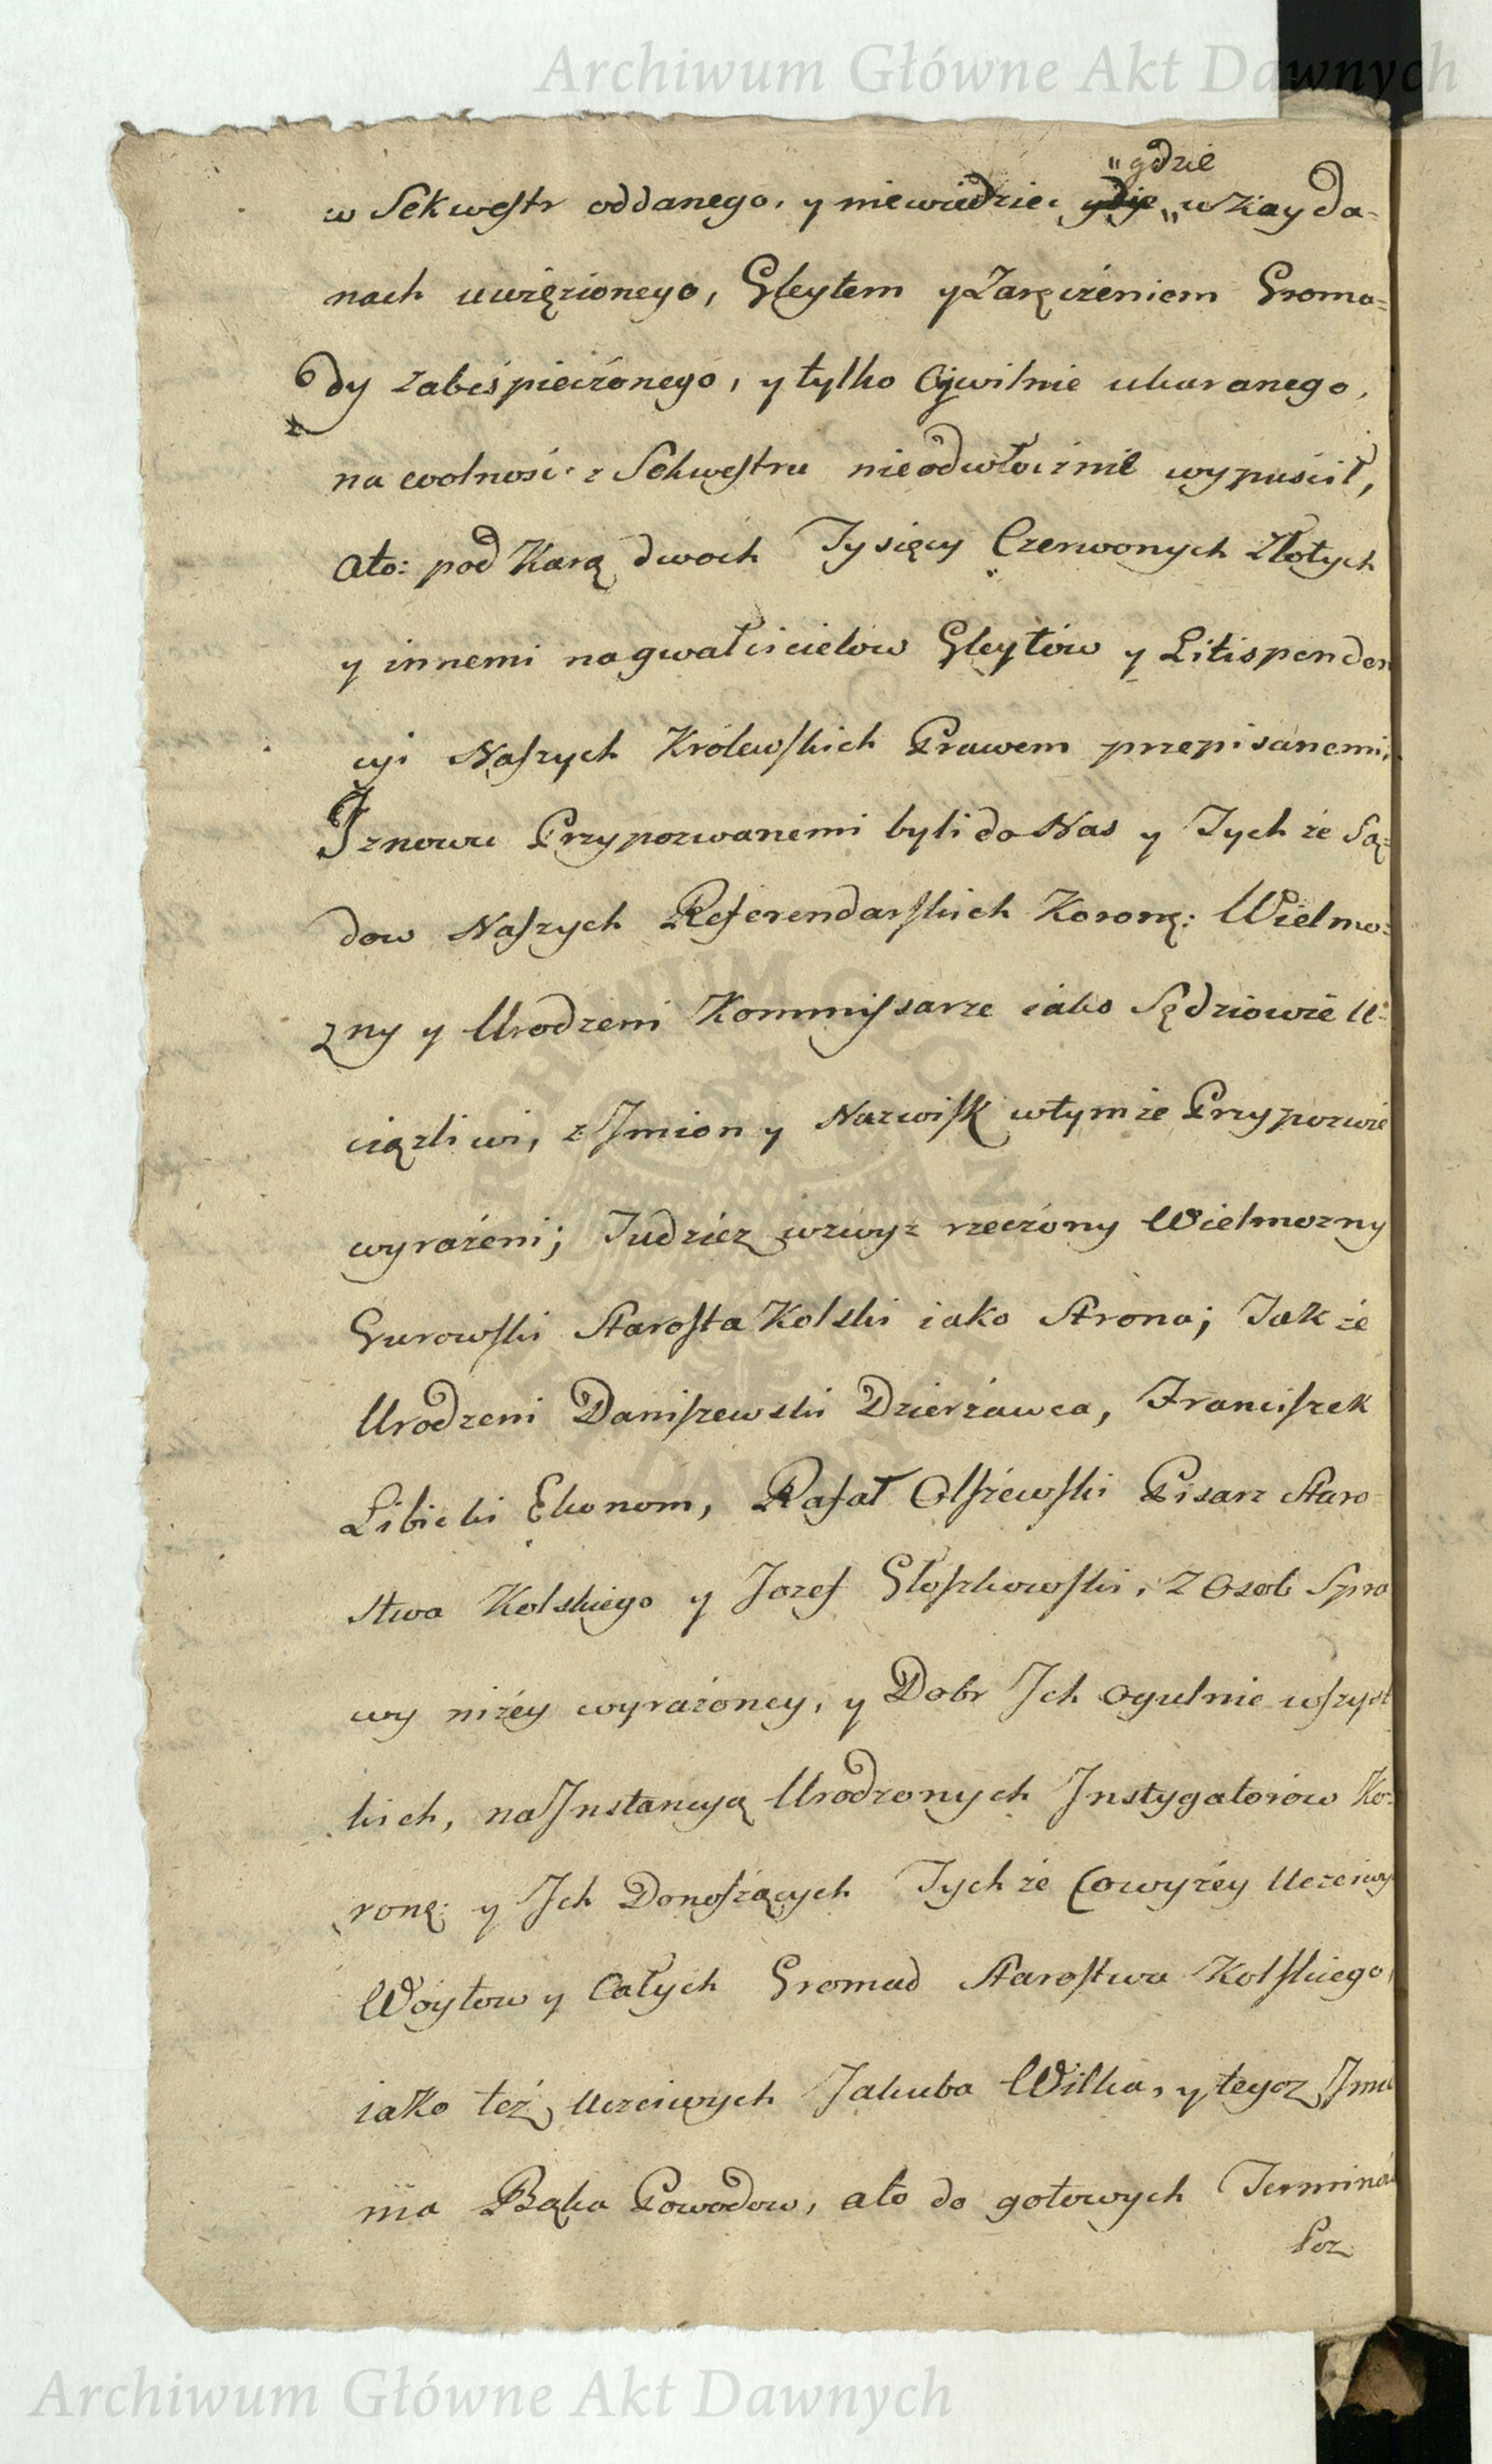 Archiwum Główne Akt Dawnych
„gdzie
w Sekwestr oddanego, y niewiedzieć gdzie „ w Kayda-
nach uwięzionego, Gleytem y Zaręczeniem Groma-
dy zabespieczonego, y tylko Cywilnie ukaranego,
na wolność z Sekwestru nieodwłocznie wypuścił,
ato: pod Karą dwoch Tysięcy Czerwonych Złotych
y innemi na gwałcicielow Gleytów y Litispenden
cyi Naszych Królewskich Prawem przepisanemi,
I znowu Przypozwanemi byli do Nas y Tychże Są-
dow Naszych Referendarskich Koronę: Wielmo-
żny y Urodzeni Kommissarze iako Sędziowie U-
ciążliwi, z Imion y Nazwisk w tymże Przypozwie
wyrażeni; Tudzież wzwyż rzeczony Wielmożny
Gurowski Starosta Kolski iako Strona; Także
Urodzeni Daniszewski Dzierżawca, Franciszek
Libicki Ekonom, Rafał Olszewski Pisarz Staro
stwa Kolskiego y Jozef Głoszkowski, z Osob Spra
wy niżey wyrażoney, y Dobr Ich ogulnie wszyst
kich, na Instancyą Urodzonych Instygatorów Ko-
ronę: y Ich Donoszących Tychże Cowyżey Uczciwy
Woytow y Całych Gromad Starostwa Kolskiego,
iako też Uczciwych Jakuba Wilka, y tegoż Imie
nia Bąka Powodow, ato do gotowych Termina
Poz
Archiwum Główne Akt Dawnych